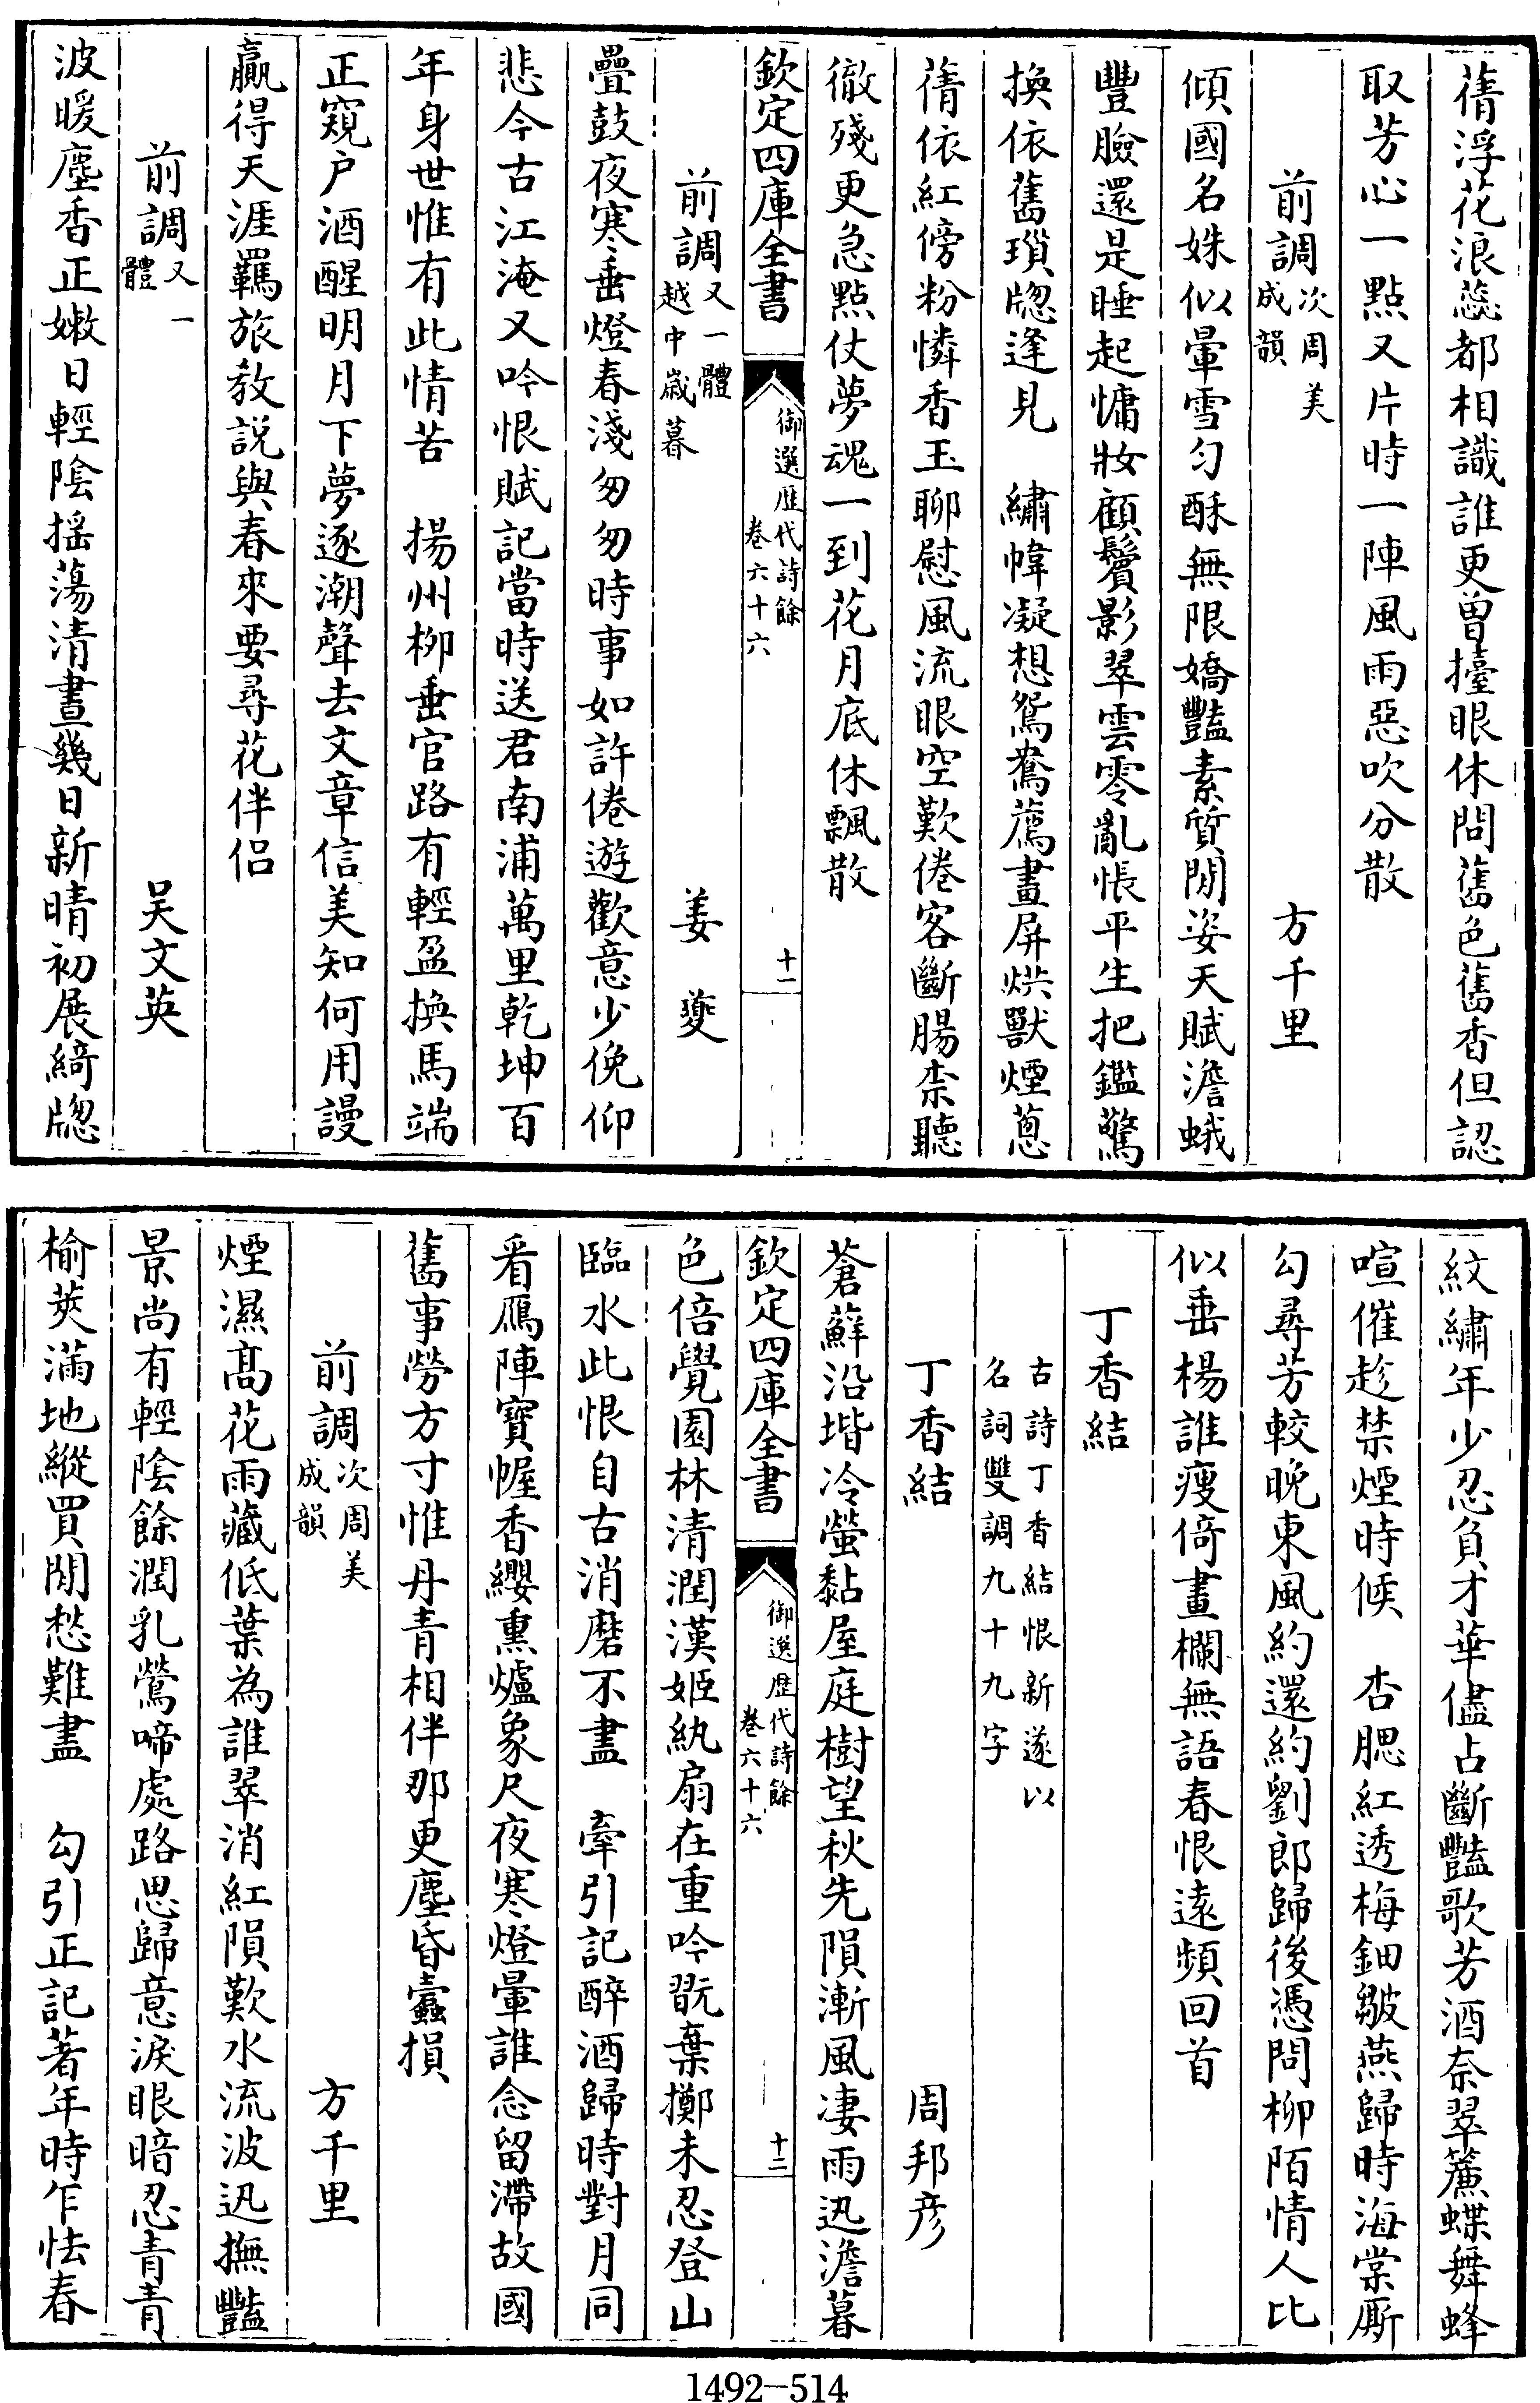 蒨浮花浪蕊都相識誰更曾擡眼休問舊色舊香但認
取芳心一點又片時一陣風雨惡吹分散
前調次周美成韻 方千里
傾國名姝似暈雪勻酥無限嬌豔素質閒姿天賦澹蛾
豐臉還是睡起慵妝顧鬢影翠雲零亂悵平生把鑑驚
換依舊瑣牕逢見 繡幃凝想鴛鴦薦畫屏烘獸煙蔥
蒨依紅傍粉憐香玉聊慰風流眼空歎倦客斷腸柰聽
徹殘更急點仗夢魂一到花月底休飄散
欽定四庫全書 御選歷代詩餘卷六十六 十一
前調又一體越中歲暮 姜夔
疊鼓夜寒垂燈春淺匆匆時事如許倦遊歡意少俛仰
悲今古江淹又吟恨賦記當時送君南浦萬里乾坤百
年身世惟有此情苦 揚州柳垂官路有輕盈換馬端
正窺户酒醒明月下夢逐潮聲去文章信美知何用謾
贏得天涯羈旅教説與春來要尋花伴侣
前調又一體 吴文英
波暖塵香正嫩日輕陰揺蕩清晝幾日新晴初展綺牕
紋繡年少忍負才華儘占斷豔歌芳酒奈翠簾蝶舞蜂
喧催趁禁煙時候 杏腮紅透梅鈿皺燕歸時海棠厮
勾尋芳較晚東風約還約劉郎歸後憑問柳陌情人比
似垂楊誰瘦倚畫欄無語春恨遠頻回首
丁香結
古詩丁香結恨新遂以
名詞雙調九十九字
丁香結 周邦彦
蒼蘚沿堦冷螢黏屋庭樹望秋先隕漸風凄雨迅澹暮
欽定四庫全書 御選歴代詩餘卷六十六 十二
色倍覺園林清潤漢姬紈扇在重吟翫棄擲未忍登山
臨水此恨自古消磨不盡 牽引記醉酒歸時對月同
看鴈陣寶幄香纓熏爐象尺夜寒燈暈誰念留滯故國
舊事勞方寸惟丹青相伴那更塵昏蠹損
前調次周美成韻 方千里
煙濕高花雨藏低葉為誰翠消紅隕歎水流波迅撫豔
景尚有輕陰餘潤乳鶯啼處路思歸意淚眼暗忍青青
榆莢滿地縱買閒愁難盡 勾引正記著年時乍怯春
1492-514